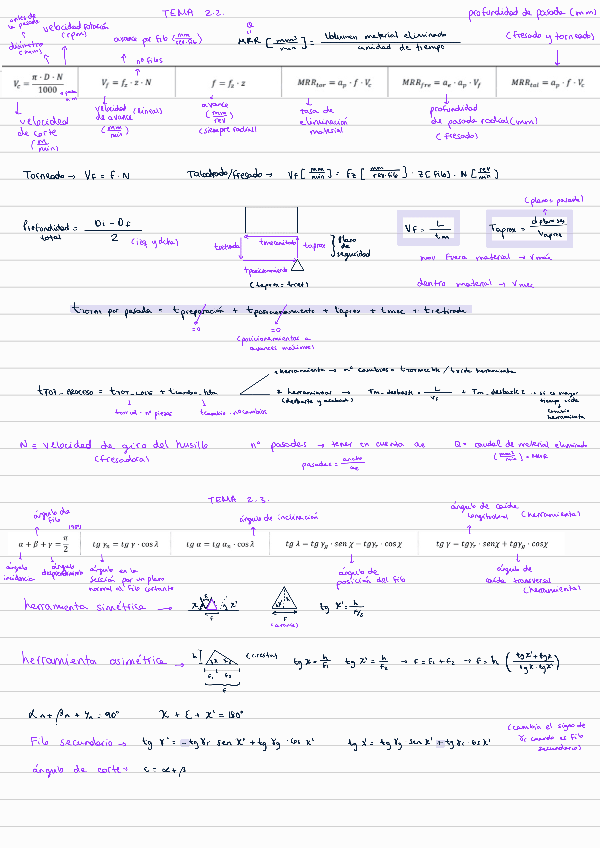 TEMA 2.2.
profundidad de pasada (mm)
(fresado y torneado)
antes de la pasada
diámetro (mm)
velocidad rotación (rpm)
avance por filo [mm/rev·filo]
nº filos
Q
MRR [mm³/min] = Volumen material eliminado / unidad de tiempo
V_c = π · D · N / 1000
V_f = f_z · z · N
f = f_z · z
MRR_tor = a_p · f · V_c
MRR_fre = a_e · a_p · V_f
MRR_tal = a_p · f · V_c
velocidad de corte (m/min)
velocidad (lineal) de avance (mm/min)
avance (mm/rev) (siempre radial)
tasa de eliminación material
profundidad de pasada radial (mm) (fresado)
Torneado → V_F = F · N
Taladrado/Fresado → V_F [mm/min] = F_z [mm/rev·filo] · z [filo] · N [rev/min]
Profundidad total = Di - Df / 2 (izq y dcha)
tretirada
tmecanizado
taprox
Plano de seguridad
tposicionamiento
(taprox = tret)
V_F = L / tm
Taprox = d plano seg / Vaprox
(plano a pasante)
mov fuera material → v máx
dentro material → v mec
ttotal por pasada = tpreparación + tposicionamiento + taprox + tmec + tretirada
=0
=0
(posicionamientos a avances máximos)
tTOT_PROCESO = tTOT_CORTE + tcambio_hta
ttotal · nº piezas
tcambio · nº cambios
1 herramienta → nº cambios =
2 herramientas (desbaste y acabado) → Tm_desbaste = L / Vf
cambio herramienta
N = velocidad de giro del husillo (fresadora)
nº pasadas → tener en cuenta ae
pasadas = ancho / ae
Q = caudal de material eliminado [mm³/min] = MRR
TEMA 2.3.
ángulo de filo
ángulo de inclinación
ángulo de caída longitudinal (herramienta)
α + β + γ = π/2
tg γ_n = tg γ · cos λ
tg α = tg α_n · cos λ
tg λ = tg γ_p · sen χ − tg γ_r · cos χ
tg γ = tg γ_r · sen χ + tg γ_p · cos χ
ángulo incidencia
ángulo desprendimiento
ángulo en la sección por un plano normal al filo cortante
ángulo de posición del filo
ángulo de caída transversal (herramienta)
herramienta simétrica →
(avance)
tg χ' = h / F/2
herramienta asimétrica →
(cresta)
tg χ = h / F₁
tg χ' = h / F₂
→ F = F₁ + F₂ → F = h (tg χ' + tg χ / tg χ · tg χ')
α_n + β_n + γ_n = 90°
χ + ε + χ' = 180°
Filo secundario → tg γ' = - tg γr sen χ' + tg γp · cos χ'
tg λ' = tg γp sen χ' + tg γr cos χ'
(cambia el signo de γr cuando es filo secundario)
ángulo de corte → c = α + β